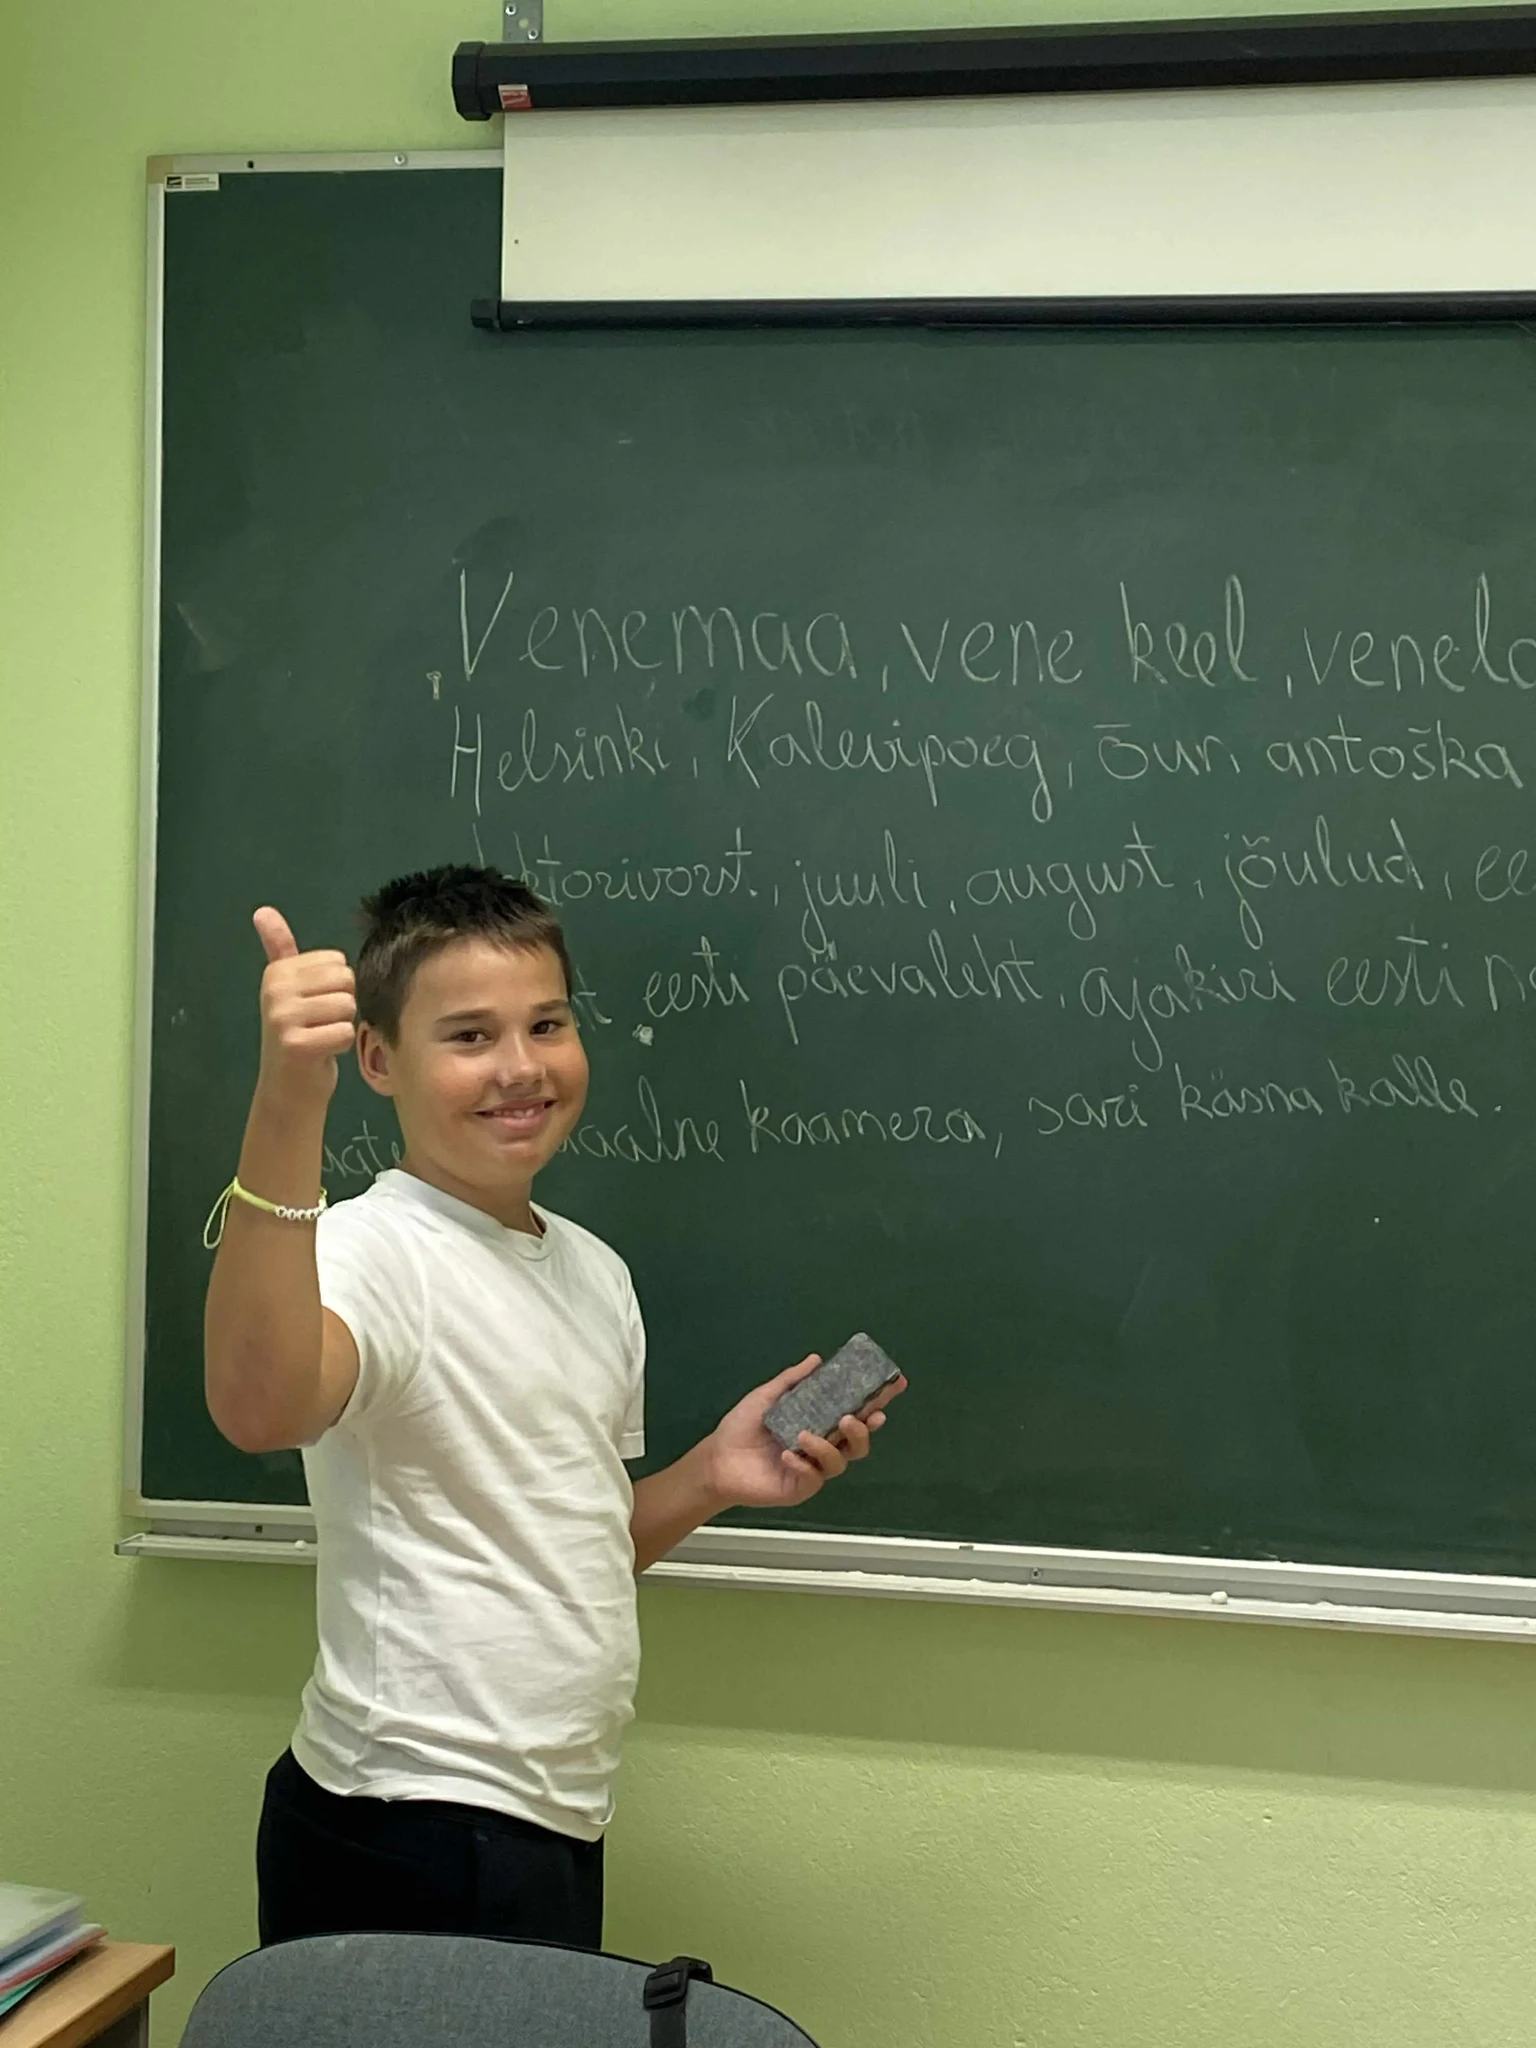 Venemaa, vene keel, venela
Helsinki, Kalevipoeg, õun antoška
ktorivorst, juuli, august, jõulud, ee
eesti päevaleht, ajakiri eesti na
kaamera, sari käsna kalle.